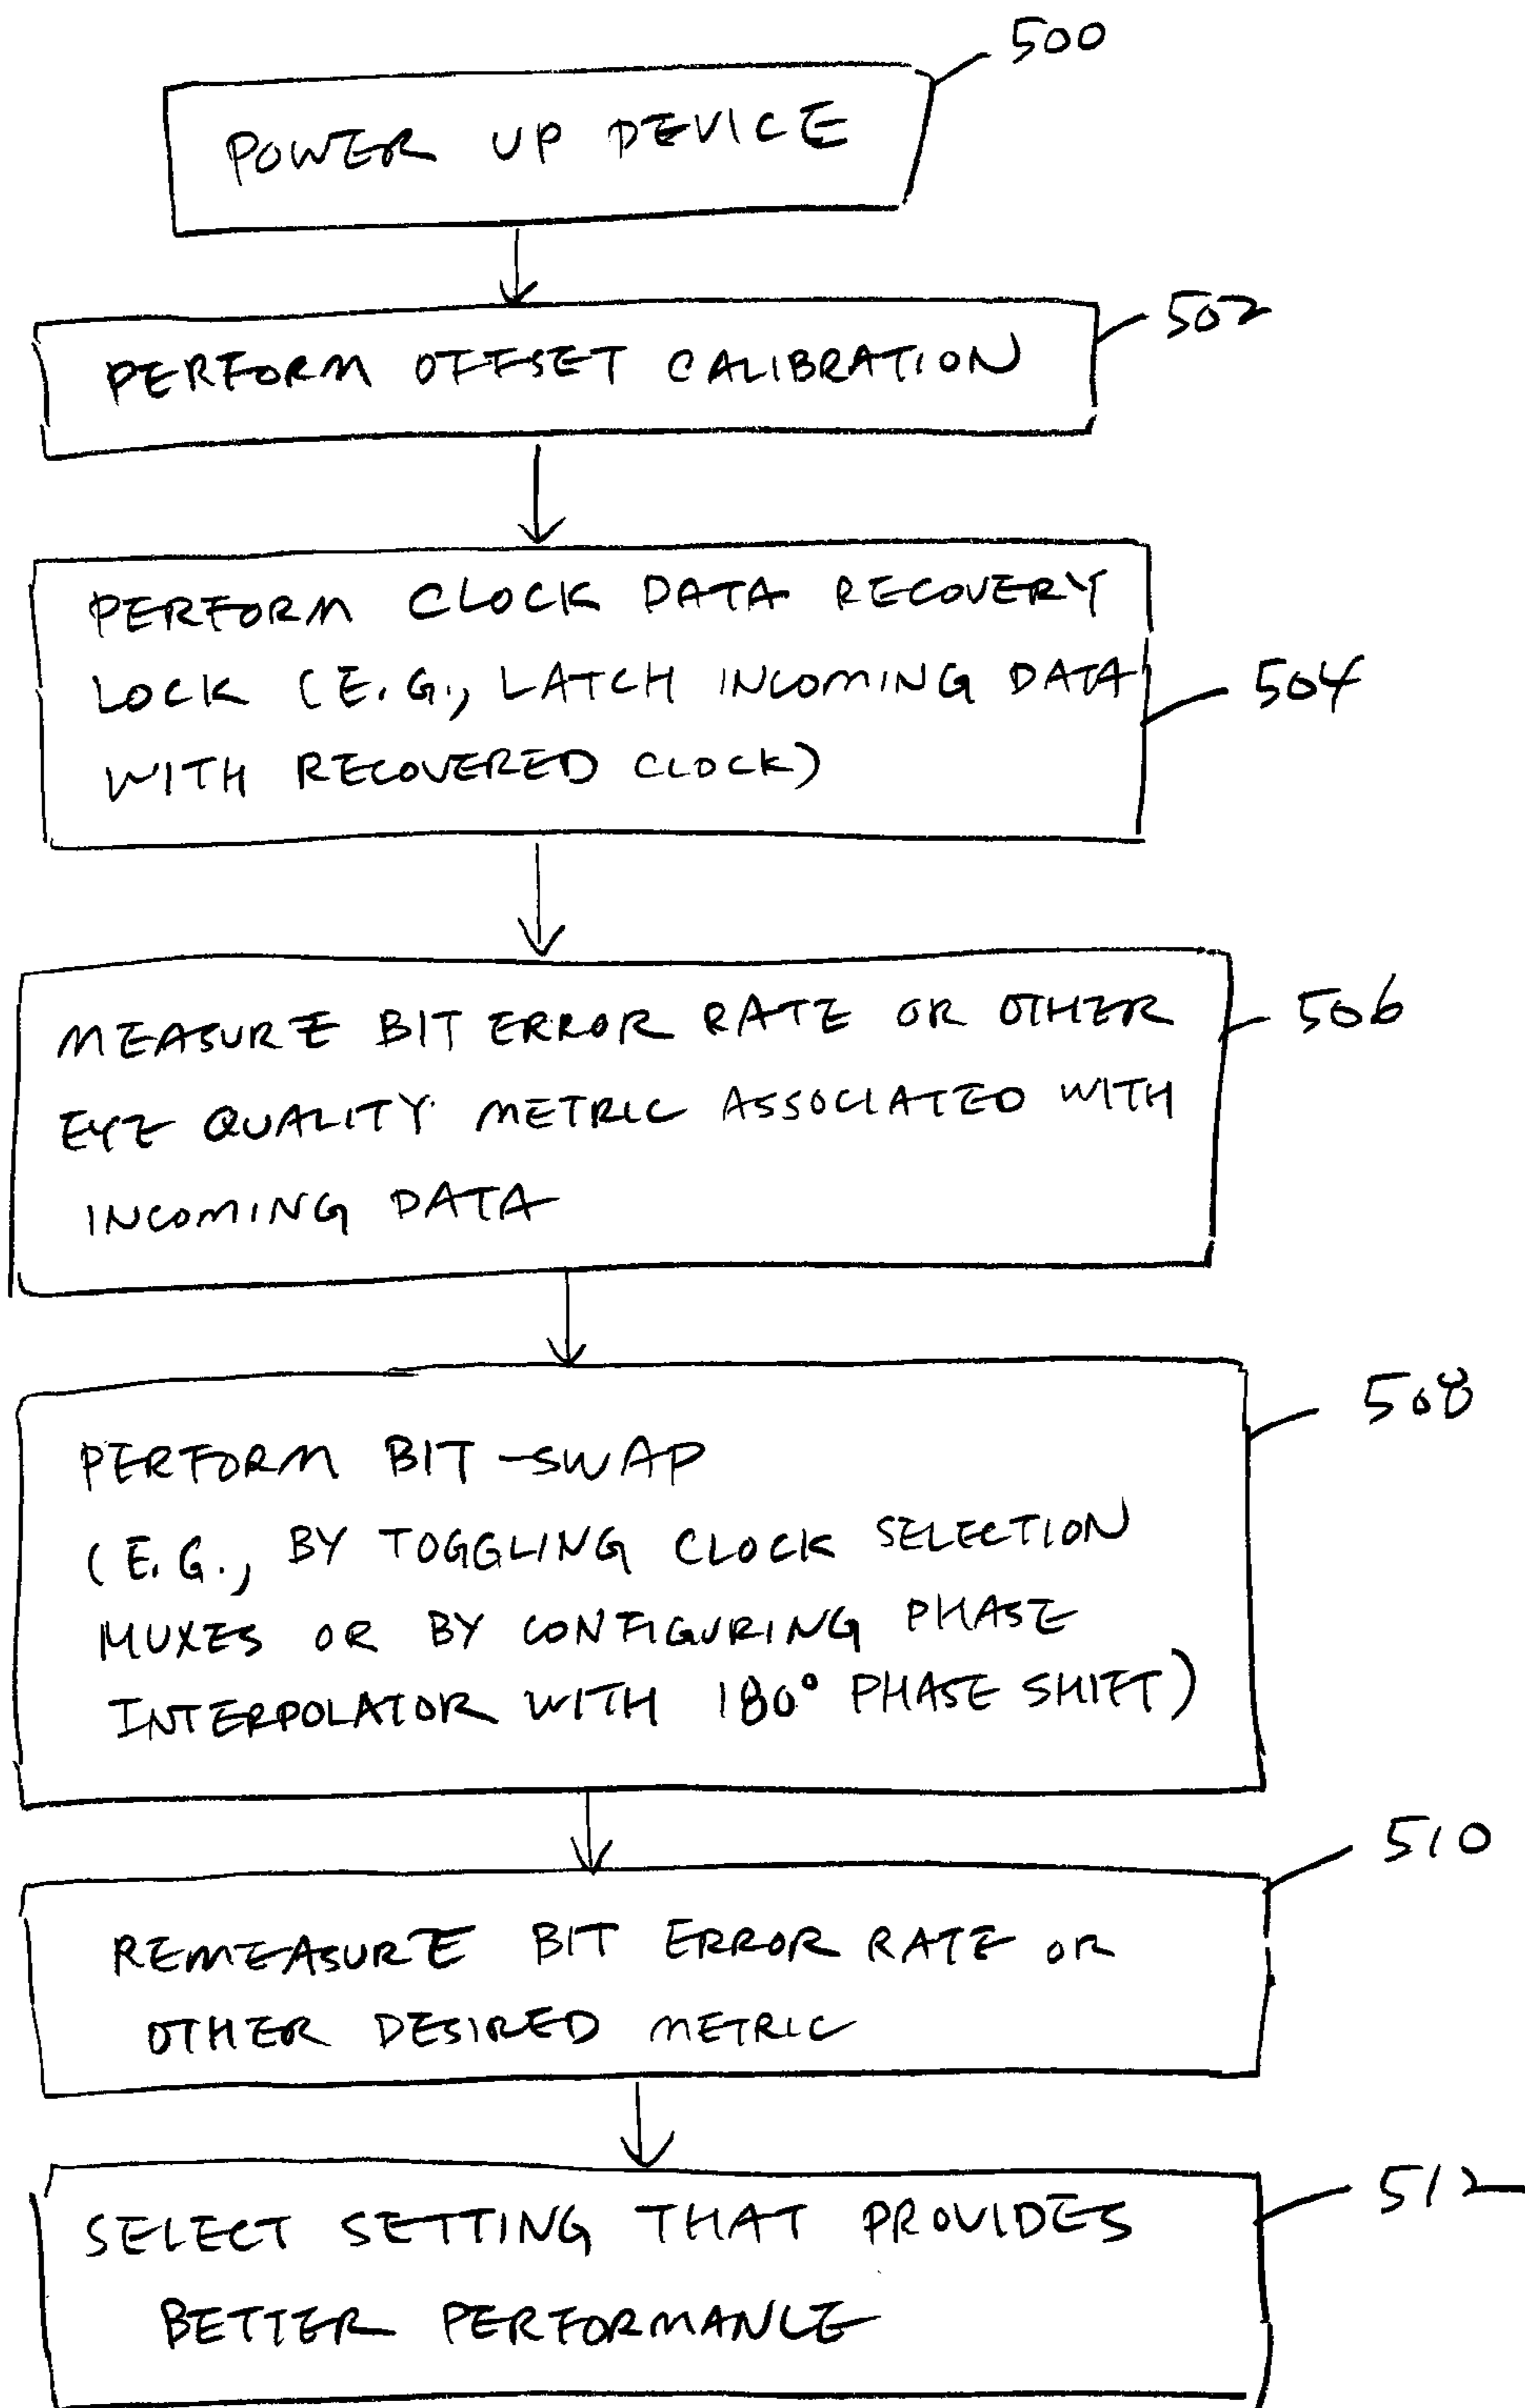 500
POWER UP DEVICE
502
PERFORM OFFSET CALIBRATION
PERFORM CLOCK DATA RECOVERY
LOCK (E.G., LATCH INCOMING DATA
504
WITH RECOVERED CLOCK)
506
MEASURE BIT ERROR RATE OR OTHER
EYE QUALITY METRIC ASSOCIATED WITH
INCOMING DATA
508
PERFORM BIT-SWAP
(E.G., BY TOGGLING CLOCK SELECTION
MUXES OR BY CONFIGURING PHASE
INTERPOLATOR WITH 180° PHASE SHIFT)
510
REMEASURE BIT ERROR RATE OR
OTHER DESIRED METRIC
512
SELECT SETTING THAT PROVIDES
BETTER PERFORMANCE